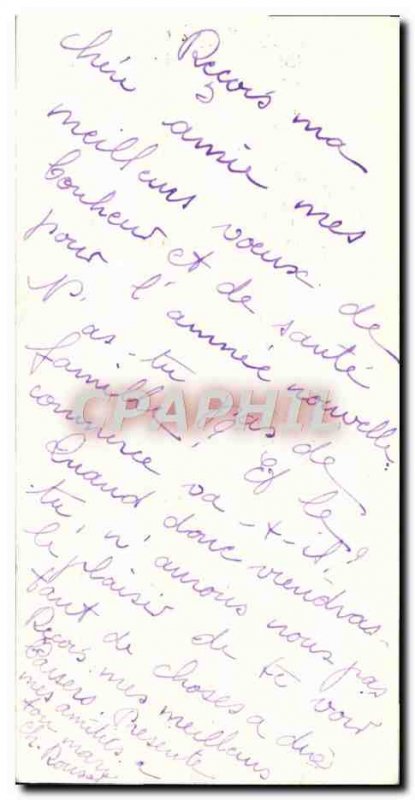 Reçois ma
chère amie mes
meilleurs voeux de
bonheur et de santé
pour l'année nouvelle.
N'as-tu pas de
famille? Et le
commerce va-t-il?
Quand donc viendras-
tu, n'aurons nous pas
le plaisir de te voir
tant de choses a dire
Reçois mes meilleurs
baisers. Présente
mes amitiés a
ton mari
Ch. Rousse
CPAPHIL